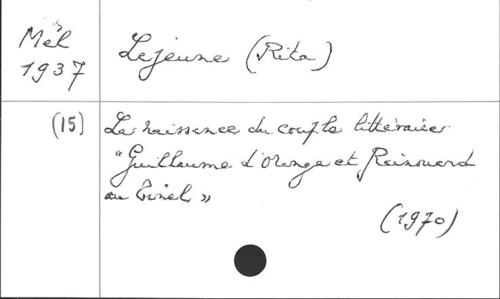 Mél
1937
Lejeune (Rita)
(15)
La naissance du couple littéraire
"Guillaume d'Orange et Rainouard
au Tinel"
(1970)